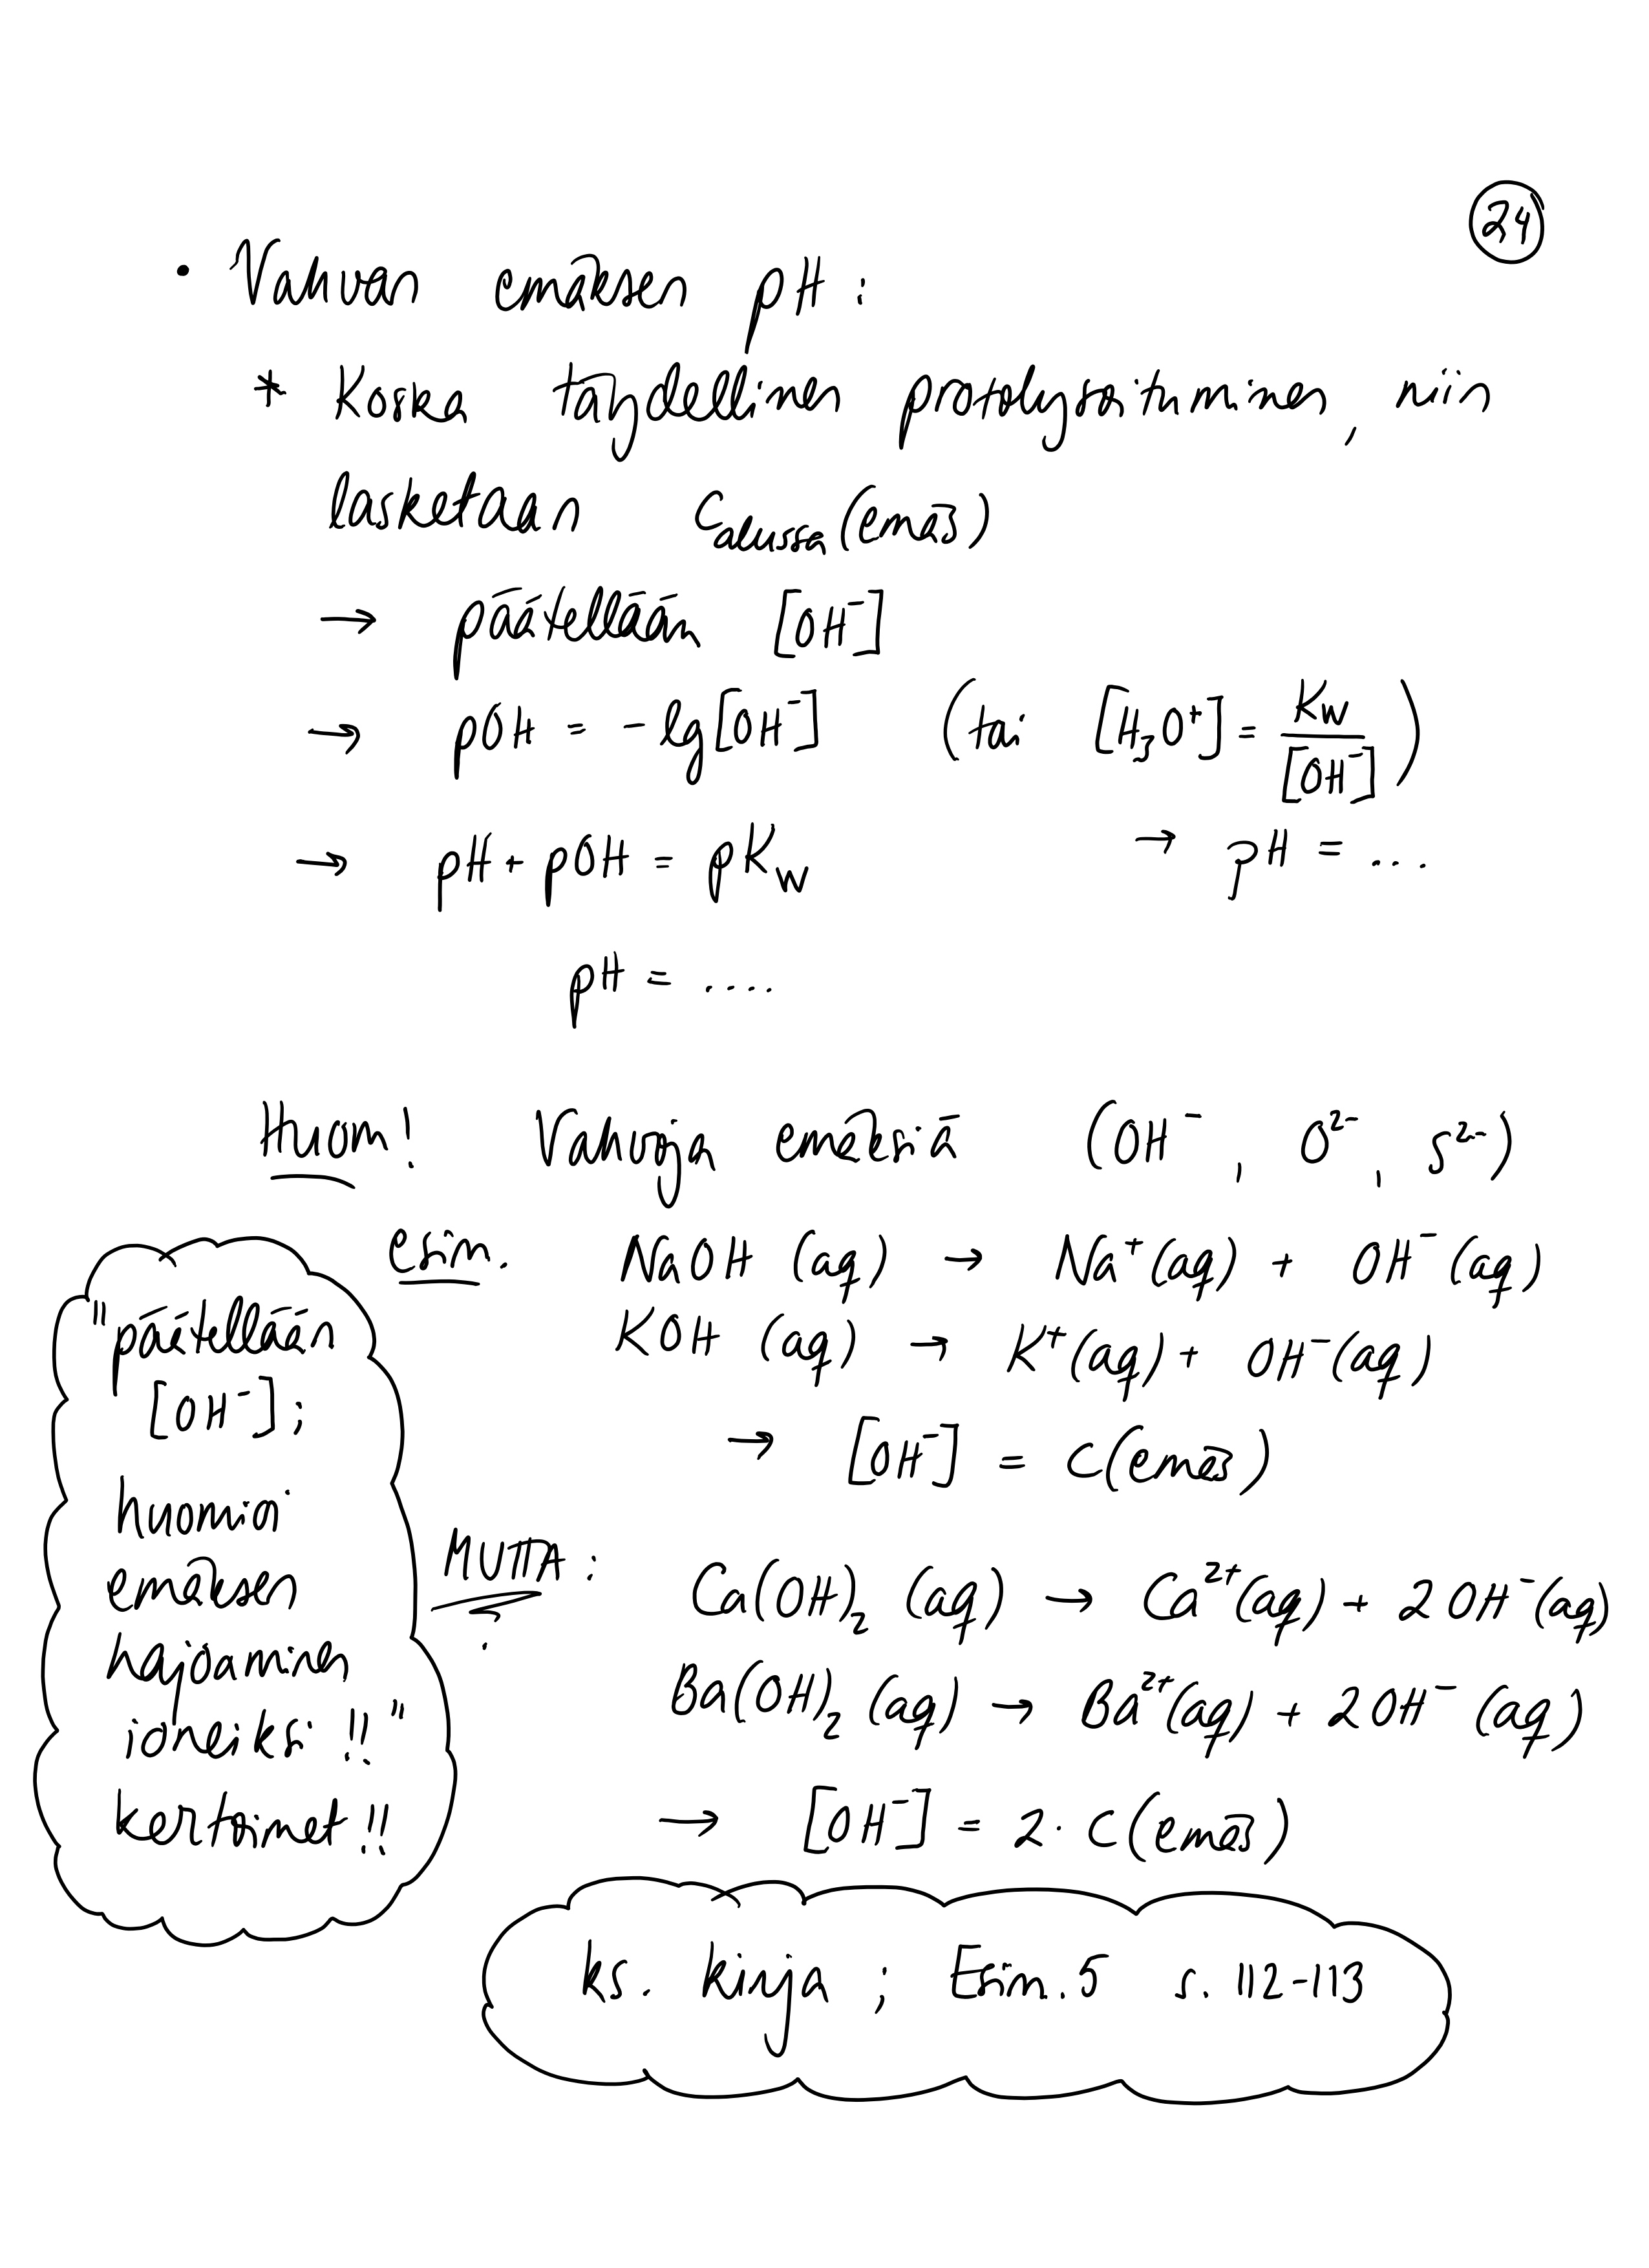 24
• Vahvan emäksen pH :
* Koska täydellinen protolysoituminen, niin
lasketaan c_alussa(emäs)
→ päätellään [OH⁻]
→ pOH = -lg[OH⁻] (tai [H₃O⁺] = Kw/[OH⁻])
→ pH + pOH = pKw → pH = ....
pH = ....
Huom! Vahvoja emäksiä (OH⁻, O²⁻, S²⁻)
esim. NaOH (aq) → Na⁺(aq) + OH⁻(aq)
KOH (aq) → K⁺(aq) + OH⁻(aq)
→ [OH⁻] = c(emäs)
MUTTA : Ca(OH)₂ (aq) → Ca²⁺(aq) + 2 OH⁻(aq)
Ba(OH)₂ (aq) → Ba²⁺(aq) + 2 OH⁻ (aq)
→ [OH⁻] = 2 · c(emäs)
"päätellään
[OH⁻];
huomioi
emäksen
hajoaminen
ioneiksi !!"
kertoimet !!
ks. kirja ; Esim. 5 s. 112-113